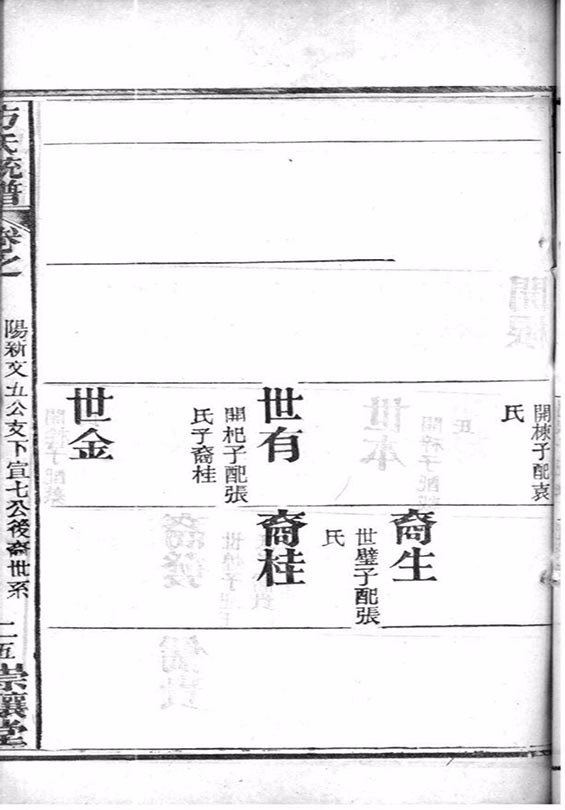 開棟子配袁
氏
世有
開杞子配張
氏子裔桂
世金
裔生
世璧子配張
氏
裔桂
方氏統譜
卷之
陽新文五公支下宣七公後裔世系
二五
崇讓堂